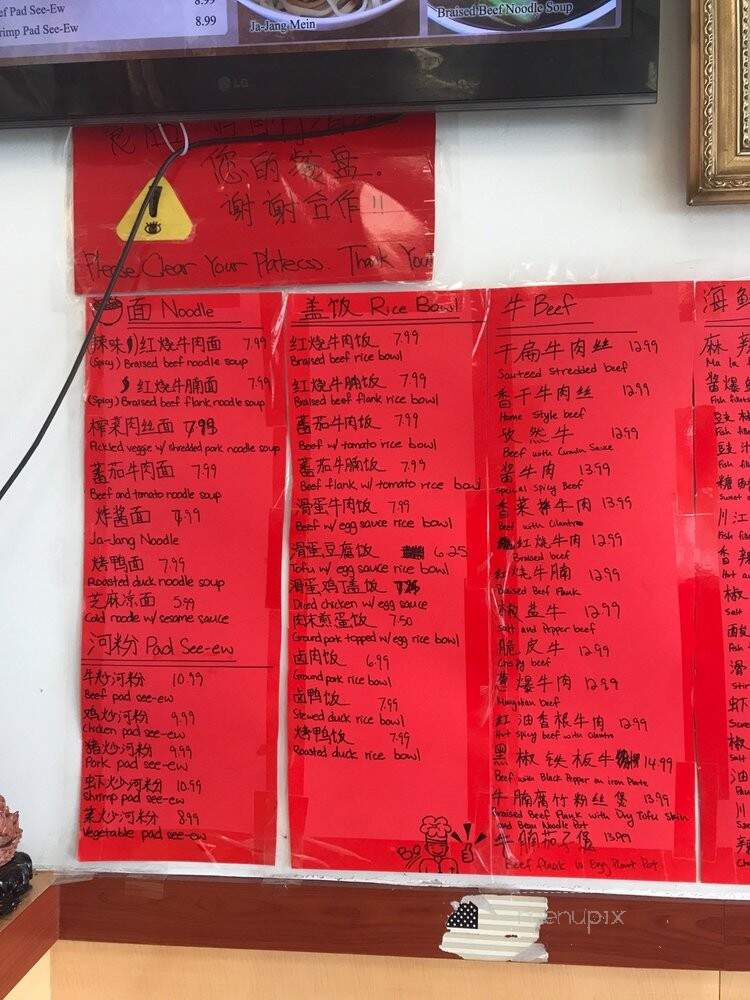 ef Pad See-Ew 8.99
rimp Pad See-Ew 8.99
Ja-Jang Mein
Braised Beef Noodle Soup
LG
您的餐盘.
谢谢合作!!
Please Clear Your Platesss. Thank You!!
面 Noodle
辣味 红烧牛肉面 7.99
(Spicy) Braised beef noodle soup
红烧牛腩面 7.99
(Spicy) Braised beef flank noodle soup
榨菜肉丝面 7.99
Pickled veggie w/ shredded pork noodle soup
蕃茄牛肉面 7.99
Beef and tomato noodle soup
炸酱面 7.99
Ja-Jang Noodle
烤鸭面 7.99
Roasted duck noodle soup
芝麻凉面 5.99
Cold noodle w/ sesame sauce
河粉 Pad See-ew
牛炒河粉 10.99
Beef pad see-ew
鸡炒河粉 9.99
Chicken pad see-ew
猪炒河粉 9.99
Pork pad see-ew
虾炒河粉 10.99
Shrimp pad see-ew
菜炒河粉 8.99
Vegetable pad see-ew
盖饭 Rice Bowl
红烧牛肉饭 7.99
Braised beef rice bowl
红烧牛腩饭 7.99
Braised beef flank rice bowl
蕃茄牛肉饭 7.99
Beef w/ tomato rice bowl
蕃茄牛腩饭 7.99
Beef flank w/ tomato rice bowl
滑蛋牛肉饭 7.99
Beef w/ egg sauce rice bowl
滑蛋豆腐饭 6.25
Tofu w/ egg sauce rice bowl
滑蛋鸡盖饭
Diced chicken w/ egg sauce
肉末煎蛋饭 7.50
Ground pork topped w/ egg rice bowl
卤肉饭 6.99
Ground pork rice bowl
卤鸭饭 7.99
Stewed duck rice bowl
烤鸭饭 7.99
Roasted duck rice bowl
牛 Beef
干扁牛肉丝 12.99
Sauteed Shredded beef
香干牛肉丝 12.99
Home Style beef
孜然牛 12.99
Beef with Cumin Sauce
酱牛肉 13.99
Special Spicy Beef
香菜牛肉 13.99
Beef with Cilantro
红烧牛肉 12.99
Braised beef
红烧牛腩 12.99
Braised Beef Flank
椒盐牛 12.99
Salt and Pepper beef
脆皮牛 12.99
Crispy beef
葱爆牛肉 12.99
Mongolian beef
红油香根牛肉 12.99
Hot spicy beef with cilantro
黑椒铁板牛 14.99
Beef with Black Pepper on iron Plate
牛腩腐竹粉丝煲 13.99
Braised Beef Flank with Dry Tofu Skin
and Bean Noodle Pot
牛腩茄子煲 13.99
Beef flank w Egg Plant Pot
海鲜
麻辣
Ma la
酱爆
Fish fillets
menupix